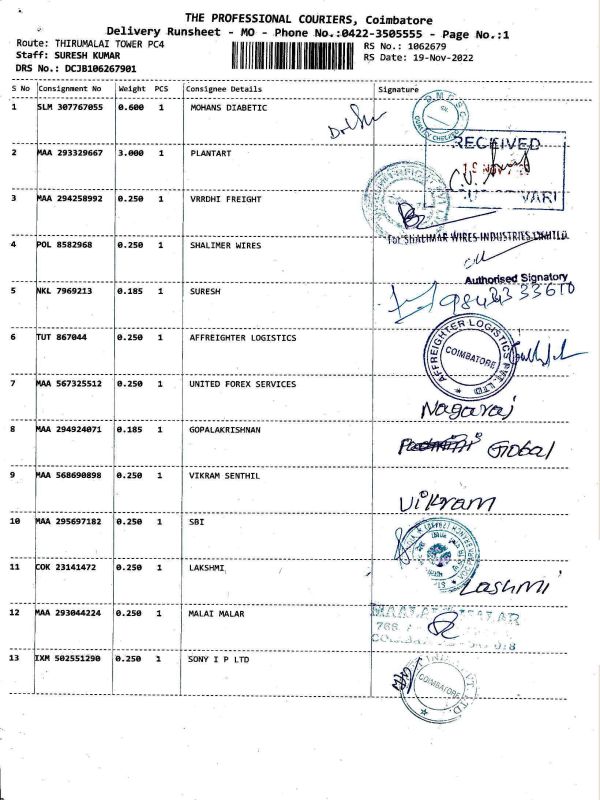 THE PROFESSIONAL COURIERS, Coimbatore
Delivery Runsheet - MO - Phone No.:0422-3505555 - Page No.:1
Route: THIRUMALAI TOWER PC4
RS No.: 1062679
Staff: SURESH KUMAR
RS Date: 19-Nov-2022
DRS No.: DCJB106267901
S No Consignment No Weight PCS Consignee Details Signature
1 SLM 307767055 0.600 1 MOHANS DIABETIC
2 MAA 293329667 3.000 1 PLANTART
RECEIVED
3 MAA 294258992 0.250 1 VRRDHI FREIGHT
VARI
4 POL 8582968 0.250 1 SHALIMER WIRES
For SHALIMAR WIRES INDUSTRIES LIMITED
Authorised Signatory
5 NKL 7969213 0.185 1 SURESH
6 TUT 867044 0.250 1 AFFREIGHTER LOGISTICS
AFFREIGHTER LOGISTICS PVT LTD
COIMBATORE
7 MAA 567325512 0.250 1 UNITED FOREX SERVICES
Nagaraj
8 MAA 294924071 0.185 1 GOPALAKRISHNAN
Global
9 MAA 568690898 0.250 1 VIKRAM SENTHIL
Vikram
10 MAA 295697182 0.250 1 SBI
11 COK 23141472 0.250 1 LAKSHMI
Lashmi
12 MAA 293044224 0.250 1 MALAI MALAR
MAALAI MALAR
13 IXM 502551290 0.250 1 SONY I P LTD
COIMBATORE